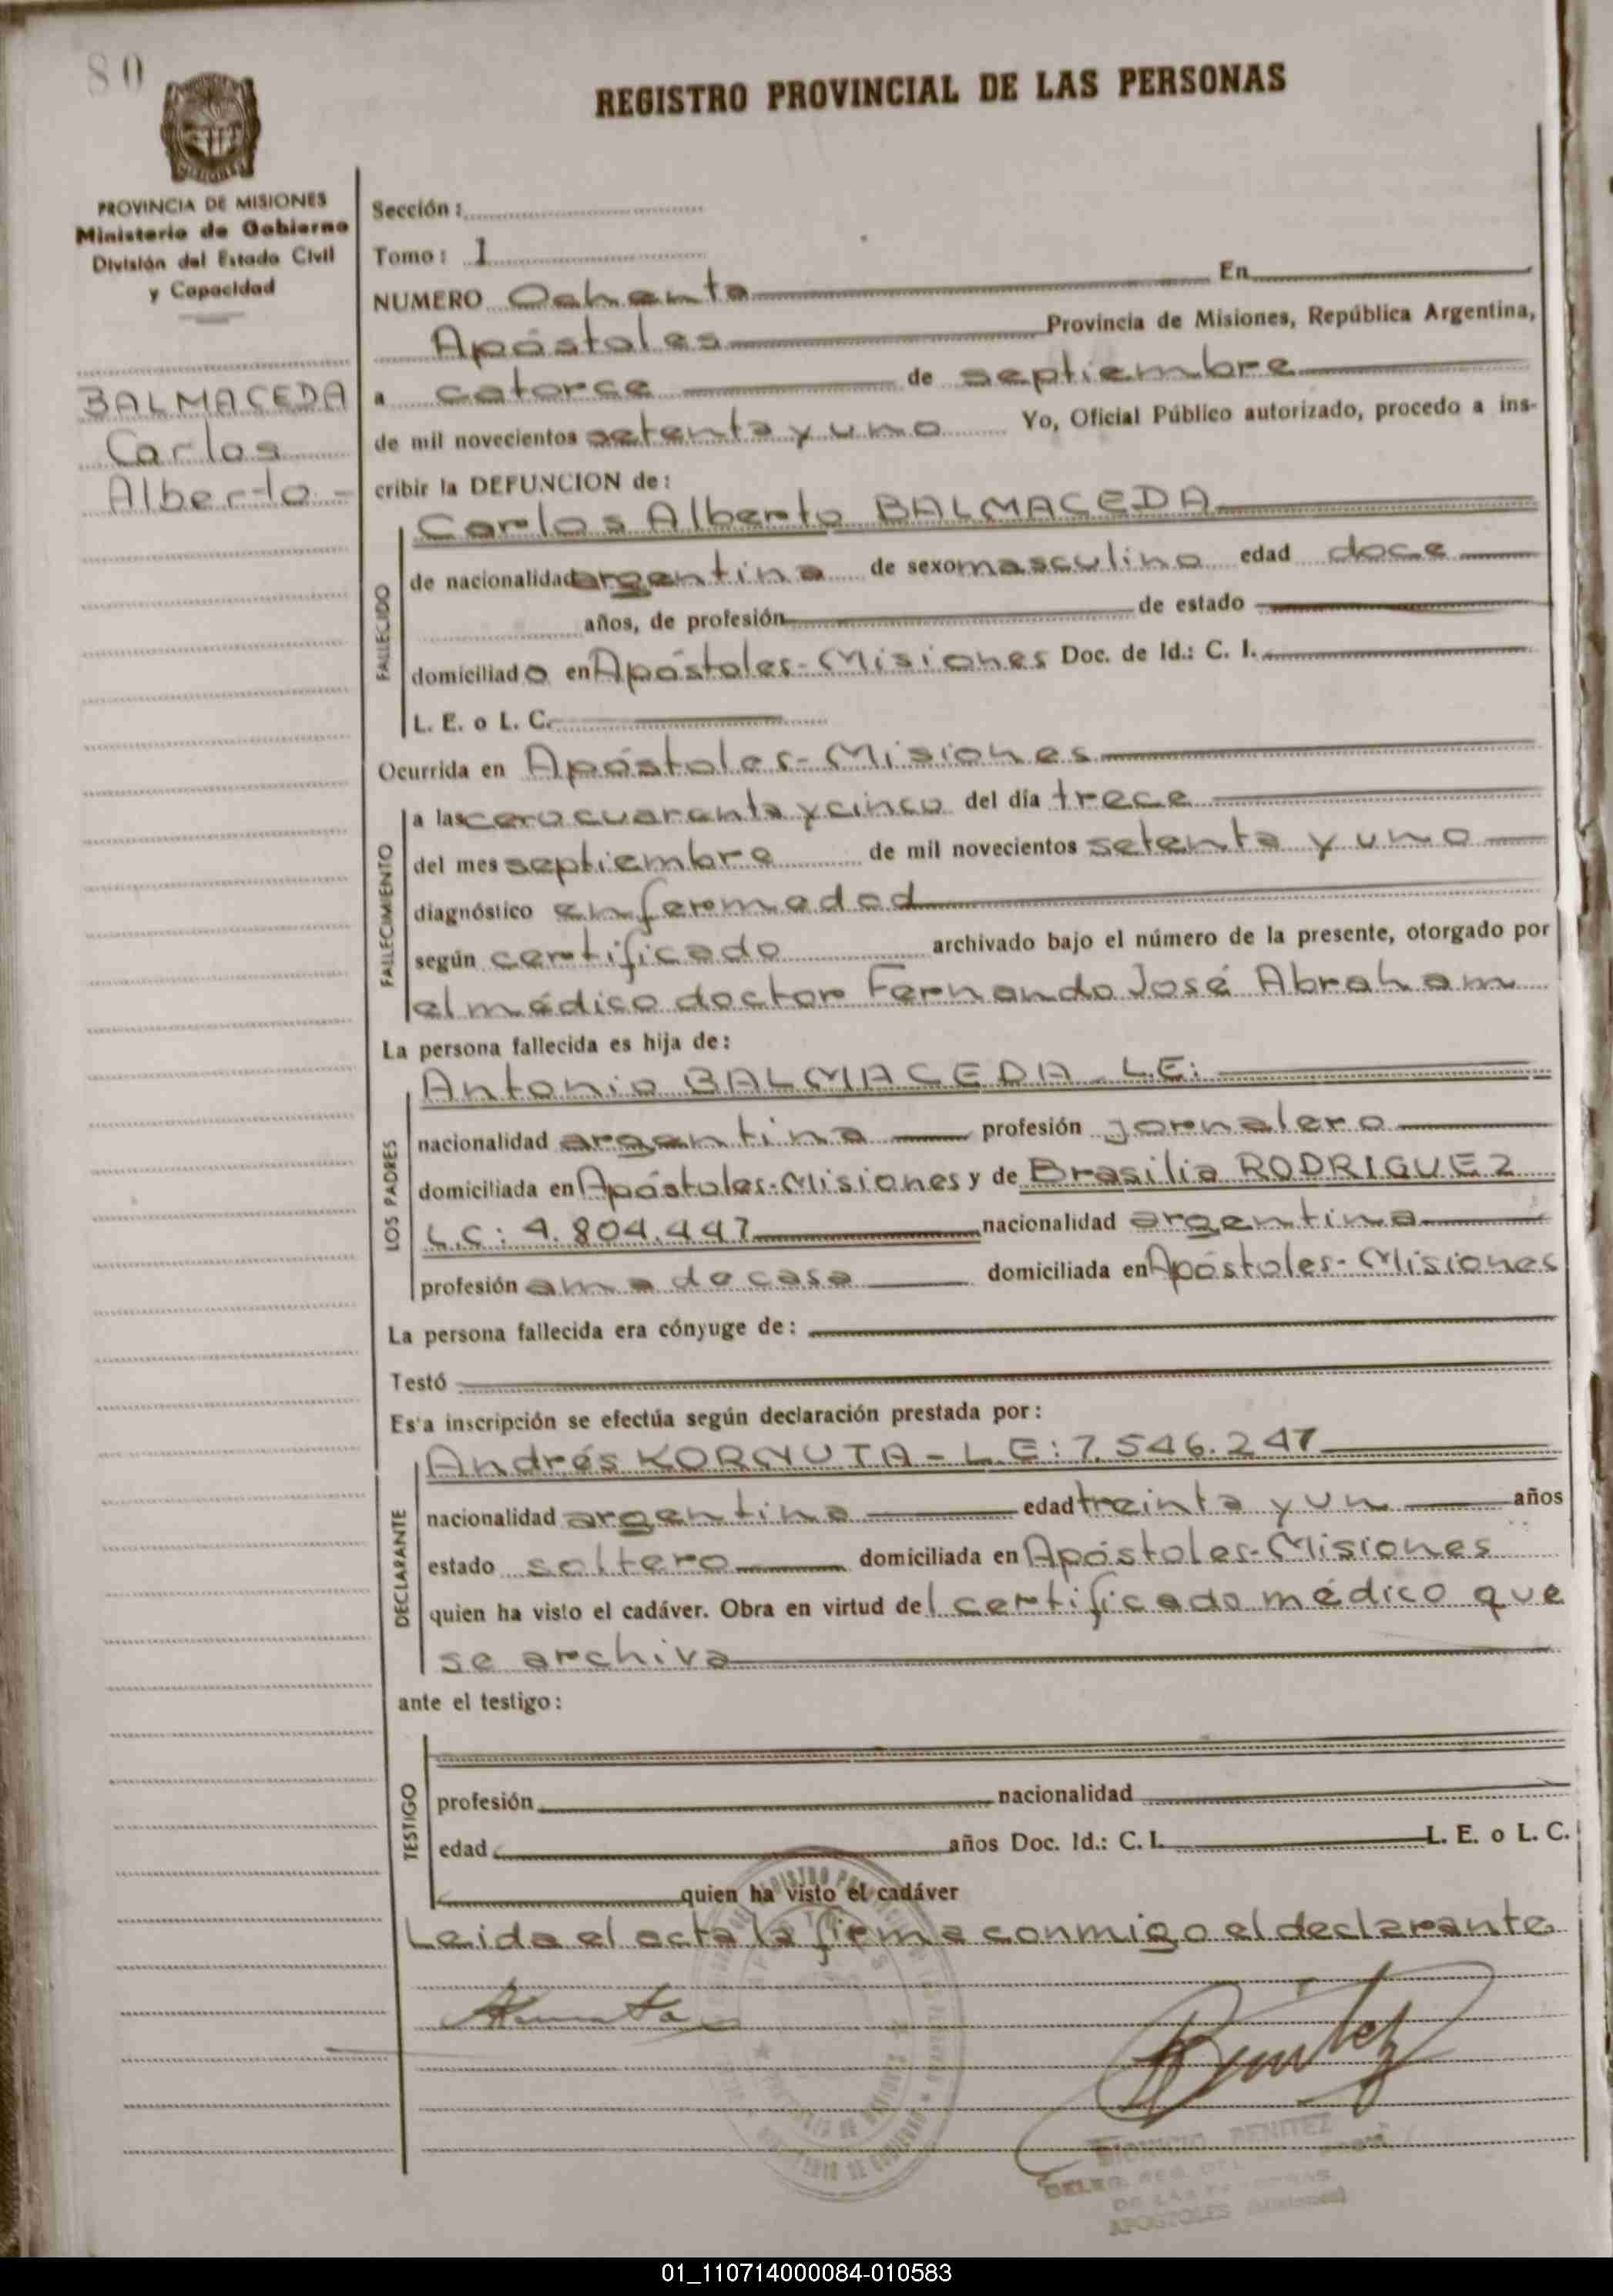 80
REGISTRO PROVINCIAL DE LAS PERSONAS
PROVINCIA DE MISIONES
Ministerio de Gobierno
División del Estado Civil
y Capacidad
BALMACEDA
Carlos
Alberto -
Sección :
Tomo : 1
NUMERO Ochenta En
Apóstoles Provincia de Misiones, República Argentina,
a catorce de septiembre
de mil novecientos setenta y uno Yo, Oficial Público autorizado, procedo a ins-
cribir la DEFUNCION de :
Carlos Alberto BALMACEDA
FALLECIDO
de nacionalidad argentina de sexo masculino edad doce
años, de profesión de estado
domiciliado en Apóstoles - Misiones Doc. de Id.: C. I.
L. E. o L. C.
Ocurrida en Apóstoles - Misiones
FALLECIMIENTO
a las cero cuarenta y cinco del día trece
del mes septiembre de mil novecientos setenta y uno
diagnóstico enfermedad
según certificado archivado bajo el número de la presente, otorgado por
el médico doctor Fernando José Abraham
La persona fallecida es hija de :
LOS PADRES
Antonio BALMACEDA - L.E:
nacionalidad argentina profesión jornalero
domiciliada en Apóstoles - Misiones y de Brasilia RODRIGUEZ
L.C: 4.804.447 nacionalidad argentina
profesión ama de casa domiciliada en Apóstoles - Misiones
La persona fallecida era cónyuge de :
Testó
Es'a inscripción se efectúa según declaración prestada por :
DECLARANTE
Andrés KORNUTA - L.E: 7.546.247
nacionalidad argentina edad treinta y un años
estado soltero domiciliada en Apóstoles - Misiones
quien ha visto el cadáver. Obra en virtud del certificado médico que
se archiva
ante el testigo :
TESTIGO
profesión nacionalidad
edad años Doc. Id.: C. I. L. E. o L. C.
quien ha visto el cadáver
Leida el acta la firma conmigo el declarante
BENITEZ
APOSTOLES (Misiones)
01_110714000084-010583